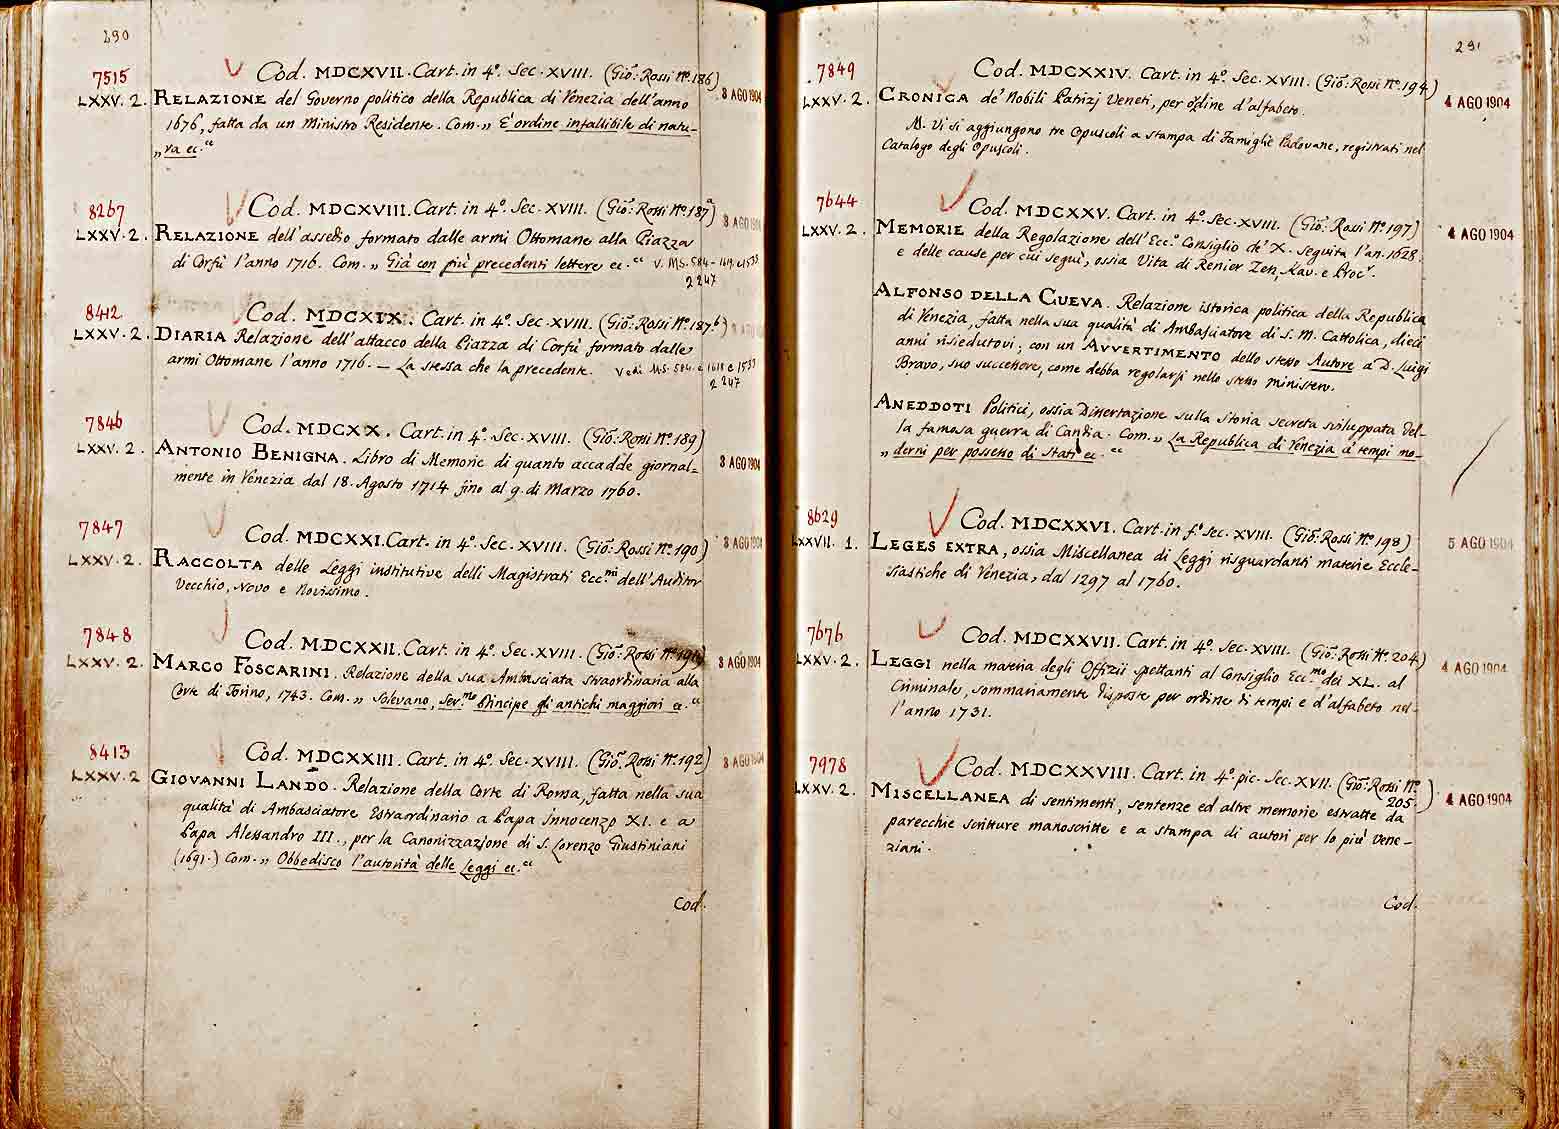 290
7515
Cod. MDCXVII. Cart. in 4º. Sec. XVIII. (Gio: Rossi Nº. 186)
LXXV. 2. RELAZIONE del Governo politico della Republica di Venezia dell'anno 3 AGO 1904
1676, fatta da un Ministro Residente. Com. „ E' ordine infallibile di natu-
„ ra ec. "
8267
Cod. MDCXVIII. Cart. in 4º. Sec. XVIII. (Gio: Rossi Nº. 187ª)
3 AGO 1904
LXXV. 2. RELAZIONE dell'assedio formato dalle armi Ottomane alla Piazza
di Corfù l'anno 1716. Com. „ Già con più precedenti lettere ec. " V. MS. 584 - 1619. e 1533
2247
8412
Cod. MDCXIX. Cart. in 4º. Sec. XVIII. (Gio: Rossi Nº. 187b)
LXXV. 2. DIARIA Relazione dell'attacco della Piazza di Corfù formato dalle
armi Ottomane l'anno 1716. — La stessa che la precedente. Vedi MS. 584. e 1618 e 1533
2247
7846
Cod. MDCXX. Cart. in 4º. Sec. XVIII. (Gio: Rossi Nº. 189)
LXXV. 2. ANTONIO BENIGNA. Libro di Memorie di quanto accadde giornal- 3 AGO 1904
mente in Venezia dal 18. Agosto 1714 fino al 9. di Marzo 1760.
7847
Cod. MDCXXI. Cart. in 4º. Sec. XVIII. (Gio: Rossi Nº. 190) 3 AGO 1904
LXXV. 2. RACCOLTA delle Leggi institutive delli Magistrati Ecc.mi dell'Auditor
Vecchio, Novo e Novissimo.
7848
Cod. MDCXXII. Cart. in 4º. Sec. XVIII. (Gio: Rossi Nº. 191)
LXXV. 2. MARCO FOSCARINI. Relazione della sua Ambasciata straordinaria alla 3 AGO 1904
Corte di Torino, 1743. Com. „ Solevano, Ser.mo Principe gli antichi maggiori ec. "
8413
Cod. MDCXXIII. Cart. in 4º. Sec. XVIII. (Gio: Rossi Nº. 192) 3 AGO 1904
LXXV. 2 GIOVANNI LANDO. Relazione della Corte di Roma, fatta nella sua
qualità di Ambasciatore Estraordinario a Papa Innocenzo XI. e a
Papa Alessandro III., per la Canonizzazione di S. Lorenzo Giustiniani
(1691.) Com. „ Obbedisco l'autorità delle Leggi ec. "
Cod.
291
7849
Cod. MDCXXIV. Cart. in 4º. Sec. XVIII. (Gio: Rossi Nº. 194)
LXXV. 2. CRONICA de' Nobili Patizj Veneti, per ordine d'alfabeto. 4 AGO 1904
N. Vi si aggiungono tre Opuscoli a stampa di Famiglie Padovane, registrati nel
Catalogo degli Opuscoli.
7644
Cod. MDCXXV. Cart. in 4º. Sec. XVIII. (Gio: Rossi Nº. 197)
LXXV. 2. MEMORIE della Regolazione dell'Ecc.º Consiglio de' X. seguita l'an. 1628. 4 AGO 1904
e delle cause per cui seguì, ossia Vita di Renier Zen, Kav. e Procr.
ALFONSO DELLA CUEVA. Relazione istorica politica della Republica
di Venezia, fatta nella sua qualità di Ambasciatore di S. M. Cattolica, dieci
anni risiedutovi; con un AVVERTIMENTO dello stesso Autore a D. Luigi
Bravo, suo successore, come debba regolarsi nello stesso ministero.
ANEDDOTI Politici, ossia Dissertazione sulla storia secreta sviluppata del-
la famosa guerra di Candia. Com. „ La Republica di Venezia a' tempi mo-
„ derni per possesso di Stati ec. "
8629
Cod. MDCXXVI. Cart. in fº. Sec. XVIII. (Gio: Rossi Nº. 198)
LXXVII. 1. LEGES EXTRA, ossia Miscellanea di Leggi risguardanti materie Eccle- 5 AGO 1904
siastiche di Venezia, dal 1297 al 1760.
7676
Cod. MDCXXVII. Cart. in 4º. Sec. XVIII. (Gio: Rossi Nº. 204)
LXXV. 2. LEGGI nella materia degli Offizii spettanti al Consiglio Ecc.mo dei XL. al 4 AGO 1904
Criminale, sommariamente disposte per ordine di tempi e d'alfabeto nel-
l'anno 1731.
7978
Cod. MDCXXVIII. Cart. in 4º. pic. Sec. XVII. (Gio: Rossi Nº. 205.)
LXXV. 2. MISCELLANEA di sentimenti, sentenze ed altre memorie estratte da 4 AGO 1904
parecchie scritture manoscritte e a stampa di autori per lo più Vene-
ziani.
Cod.